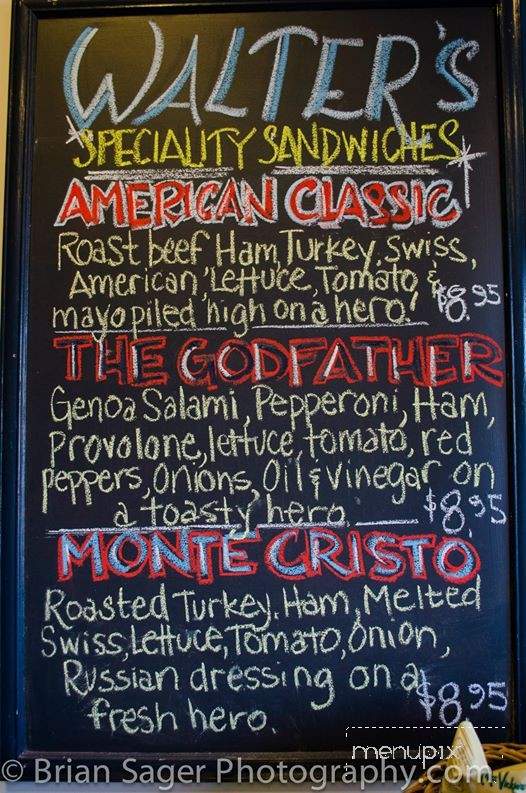 WALTER'S
SPECIALITY SANDWICHES
AMERICAN CLASSIC
Roast beef Ham, Turkey, Swiss,
American, Lettuce, Tomato &
mayo piled high on a hero! $8.95
THE GODFATHER
Genoa Salami, Pepperoni, Ham,
Provolone, lettuce, tomato, red
peppers, Onions, Oil & Vinegar on
a toasty hero $8.95
MONTE CRISTO
Roasted Turkey, Ham, Melted
Swiss, Lettuce, Tomato, Onion,
Russian dressing on a
fresh hero. $8.95
menupix
© Brian Sager Photography.com